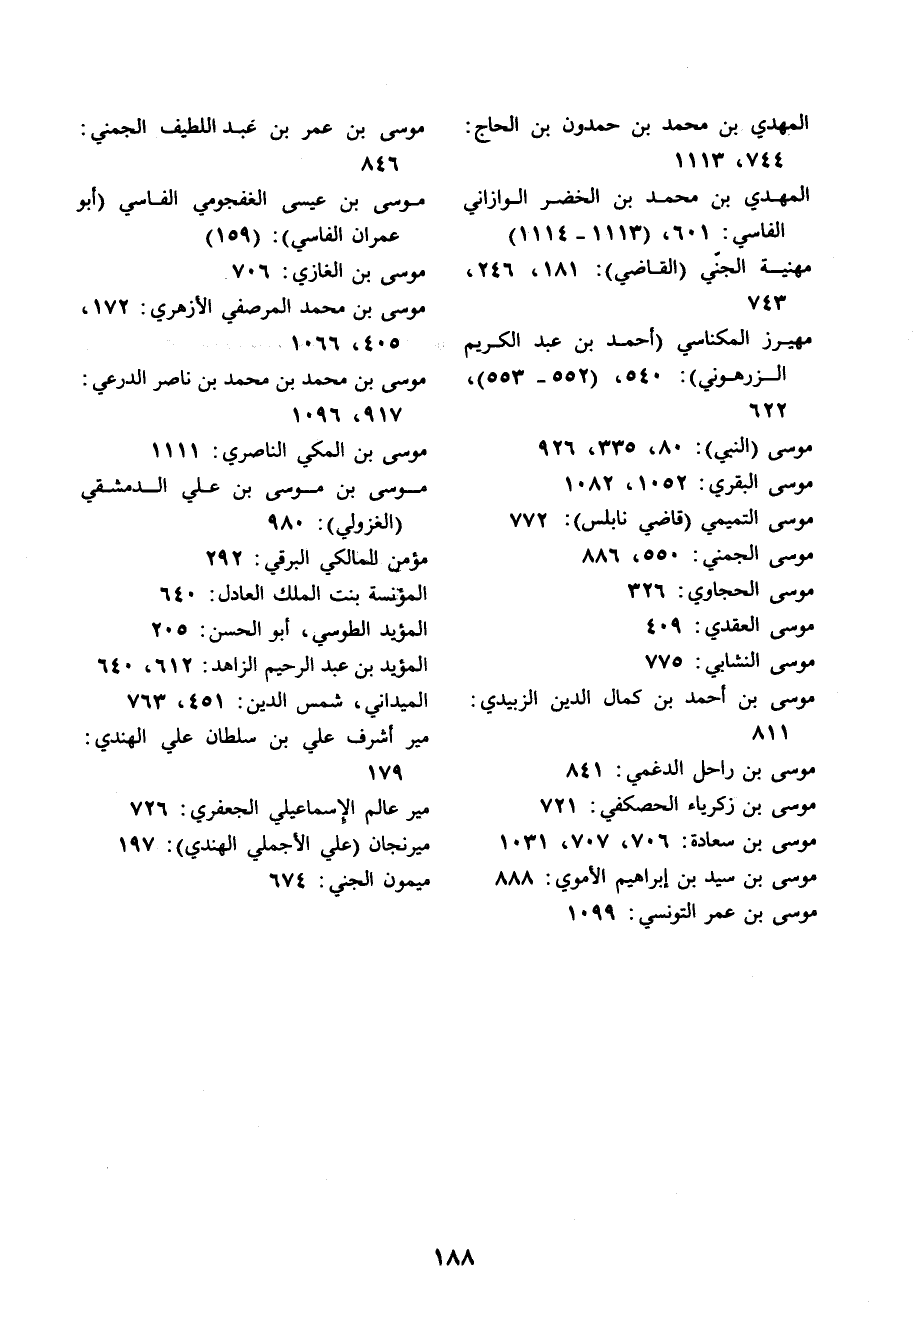 المهدي بن محمد بن حمدون بن الحاج:
٧٤٤، ١١١٣
المهدي بن محمد بن الخضر الوازاني
الفاسي: ٦٠١، (١١١٣ - ١١١٤)
مهنية الجنّي (القاضي): ١٨١، ٢٤٦،
٧٤٣
مهيرز المكناسي (أحمد بن عبد الكريم
الزرهوني): ٥٤٠، (٥٥٢ - ٥٥٣)،
٦٢٢
موسى (النبي): ٨٠، ٣٣٥، ٩٢٦
موسى البقري: ١٠٥٢، ١٠٨٢
موسى التميمي (قاضي نابلس): ٧٧٢
موسى الجمني: ٥٥٠، ٨٨٦
موسى الحجاوي: ٣٢٦
موسى العقدي: ٤٠٩
موسى النشابي: ٧٧٥
موسى بن أحمد بن كمال الدين الزبيدي:
٨١١
موسى بن راحل الدغمي: ٨٤١
موسى بن زكرياء الحصكفي: ٧٢١
موسى بن سعادة: ٧٠٦، ٧٠٧، ١٠٣١
موسى بن سيد بن إبراهيم الأموي: ٨٨٨
موسى بن عمر التونسي: ١٠٩٩
موسى بن عمر بن عبد اللطيف الجمني:
٨٤٦
موسى بن عيسى الغفجومي الفاسي (أبو
عمران الفاسي): (١٥٩)
موسى بن الغازي: ٧٠٦
موسى بن محمد المرصفي الأزهري: ١٧٢،
٤٠٥، ١٠٦٦
موسى بن محمد بن محمد بن ناصر الدرعي:
٩١٧، ١٠٩٦
موسى بن المكي الناصري: ١١١١
موسى بن موسى بن علي الدمشقي
(الغزولي): ٩٨٠
مؤمن للمالكي البرقي: ٢٩٢
المؤنسة بنت الملك العادل: ٦٤٠
المؤيد الطوسي، أبو الحسن: ٢٠٥
المؤيد بن عبد الرحيم الزاهد: ٦١٢، ٦٤٠
الميداني، شمس الدين: ٤٥١، ٧٦٣
مير أشرف علي بن سلطان علي الهندي:
١٧٩
مير عالم الإسماعيلي الجعفري: ٧٢٦
ميرنجان (علي الأجملي الهندي): ١٩٧
ميمون الجني: ٦٧٤
١٨٨